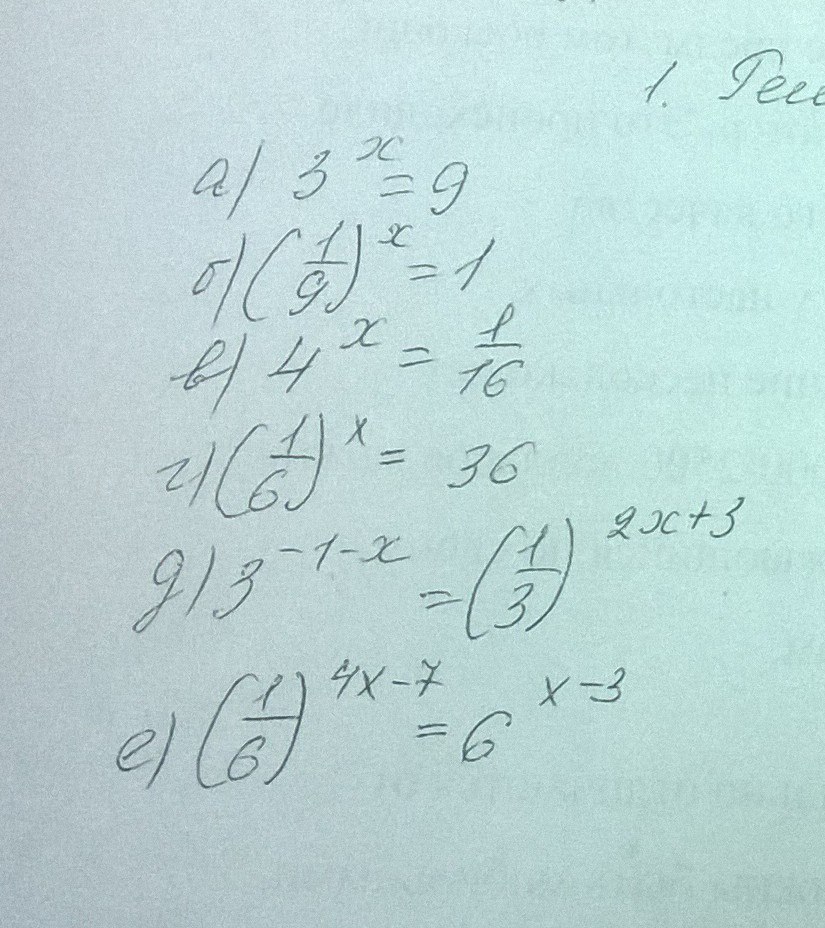 1. Реш
а) 3^x = 9
б) (1/9)^x = 1
в) 4^x = 1/16
г) (1/6)^x = 36
д) 3^(-1-x) = (1/3)^(2x+3)
е) (1/6)^(4x-7) = 6^(x-3)